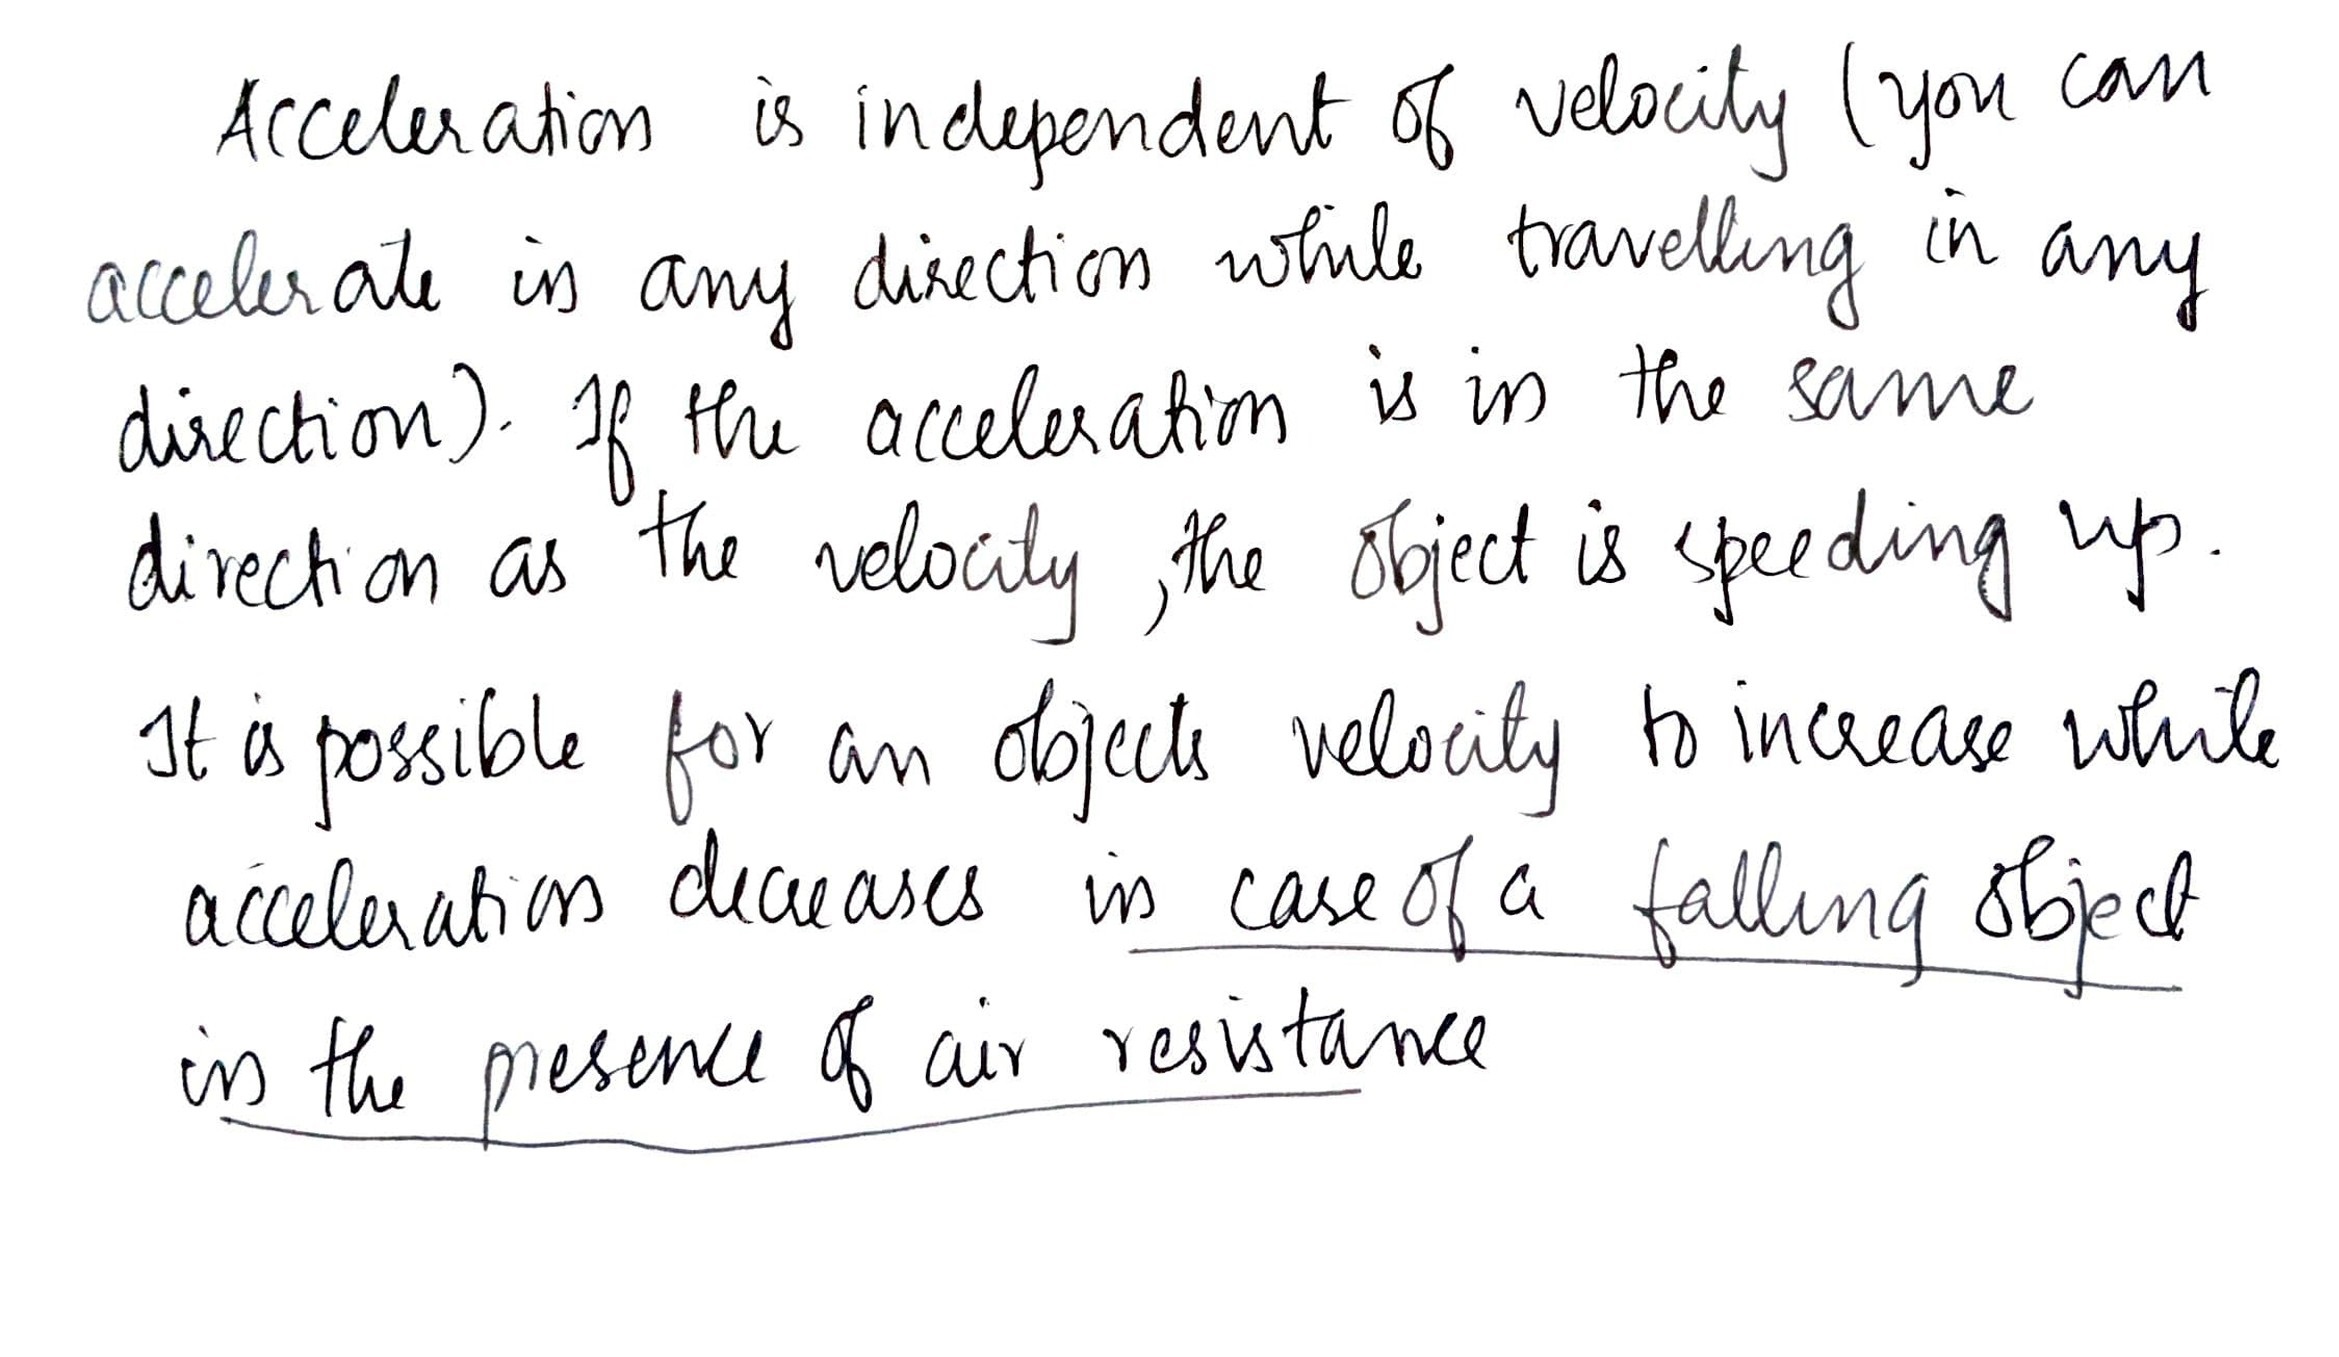 Acceleration is independent of velocity (you can
accelerate in any direction while travelling in any
direction). If the acceleration is in the same
direction as the velocity, the object is speeding up.
It is possible for an objects velocity to increase while
acceleration decreases in case of a falling object
in the presence of air resistance